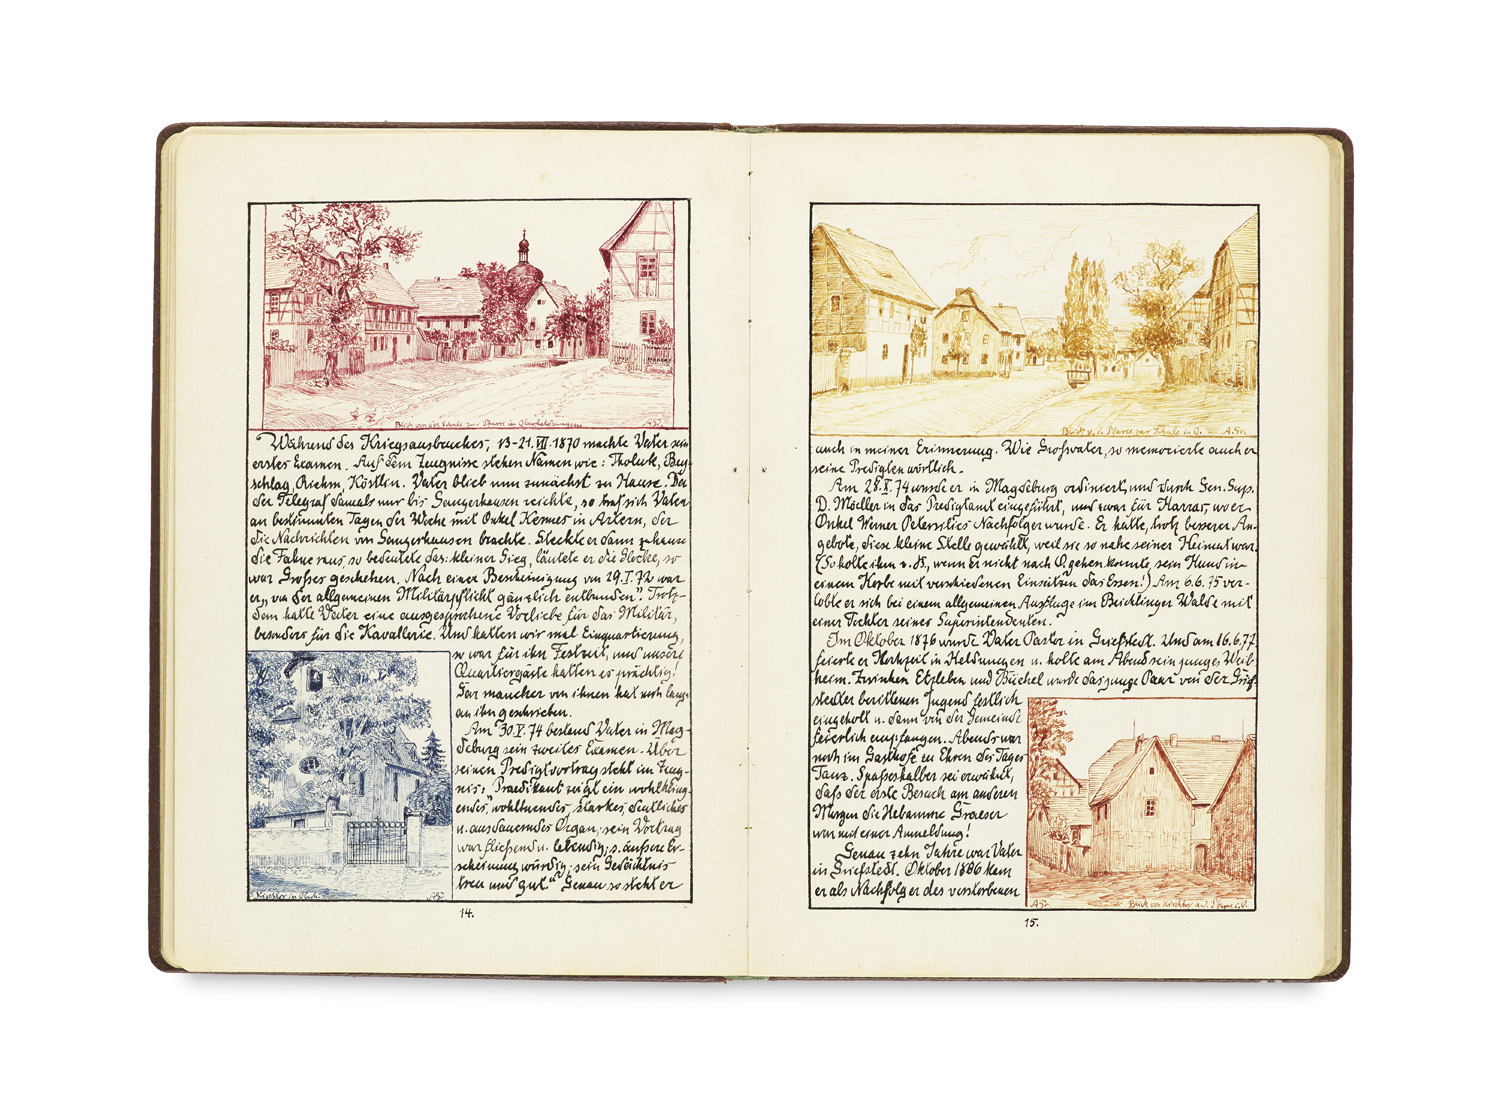 Blick von der Schule zur Pfarre in Oberheldrungen. ASr.
Während des Kriegsausbruches, 13-21. VII. 1870 machte Vater sein
erstes Examen. Auf dem Zeugnisse stehen Namen wie: Tholuck, Bey-
schlag, Riehm, Köstlin. Vater blieb nun zunächst zu Hause. Da
der Telegraf damals nur bis Sangerhausen reichte, so traf sich Vater
an bestimmten Tagen der Woche mit Onkel Kermes in Artern, der
die Nachrichten von Sangerhausen brachte. Steckte er dann zuhause
die Fahne raus, so bedeutete das: kleiner Sieg, läutete er die Glocke, so
war Großes geschehen. Nach einer Bescheinigung von 29.I.72 war
er „von der allgemeinen Militärpflicht gänzlich entbunden". Trotz-
dem hatte Vater eine ausgesprochene Vorliebe für das Militär,
besonders für die Kavallerie. Und hatten wir mal Einquartierung,
so war für ihn Festzeit, und unsere
Quartiergäste hatten es prächtig!
Gar mancher von ihnen hat noch lang
an ihn geschrieben.
Am 30.V. 74 bestand Vater in Mag-
deburg sein zweites Examen. Über
seinen Predigtvortrag steht im Zeug-
nis: „Praedikant zeigt ein wohlkling-
endes, wohltuendes, starkes, deutliches
u. ausdauerndes Organ; sein Vortrag
war fließend u. lebendig; s. äußere Er-
scheinung würdig; sein Gedächtnis
treu und gut." Genau so steht er
ASr.
14.
Blick v. d. Pfarre zur Schule in O. A.Sr.
auch in meiner Erinnerung. Wie Großvater, so memorierte auch er
seine Predigten wörtlich.
Am 28.X. 74 wurde er in Magdeburg ordiniert, und durch Gen. Sup.
D. Möller in das Predigtamt eingeführt, und zwar für Harras, wo er
Onkel Werner Petersilies Nachfolger wurde. Er hatte, trotz besserer An-
gebote, diese kleine Stelle gewählt, weil sie so nahe seiner Heimat war.
(So holte ihm v. dt., wenn er nicht nach O. gehen konnte, sein Hund in
einem Korbe mit verschiedenen Einsätzen das Essen!) Am 6.6.75 ver-
lobte er sich bei einem allgemeinen Ausfluge im Beichlinger Walde mit
einer Tochter seines Superintendenten.
Im Oktober 1876 wurde Vater Pastor in Griefstedt. Und am 16.6.77
feierte er Hochzeit in Heldrungen u. holte am Abend sein junges Weib
heim. Zwischen Etzleben und Büchel wurde das junge Paar von der Grief-
stedter berittenen Jugend festlich
eingeholt u. dann von der Gemeinde
feierlich empfangen. Abends war
noch im Gasthofe zu Ehren des Tages
Tanz. Spaßeshalber sei erwähnt,
daß der erste Besuch am anderen
Morgen die Hebamme Graeser
war mit einer Anmeldung!
Genau zehn Jahre war Vater
in Griefstedt. Oktober 1886 kam
er als Nachfolger des verstorbenen
ASr. Blick vom Kirchtor a. d. Pfarre i. O.
15.